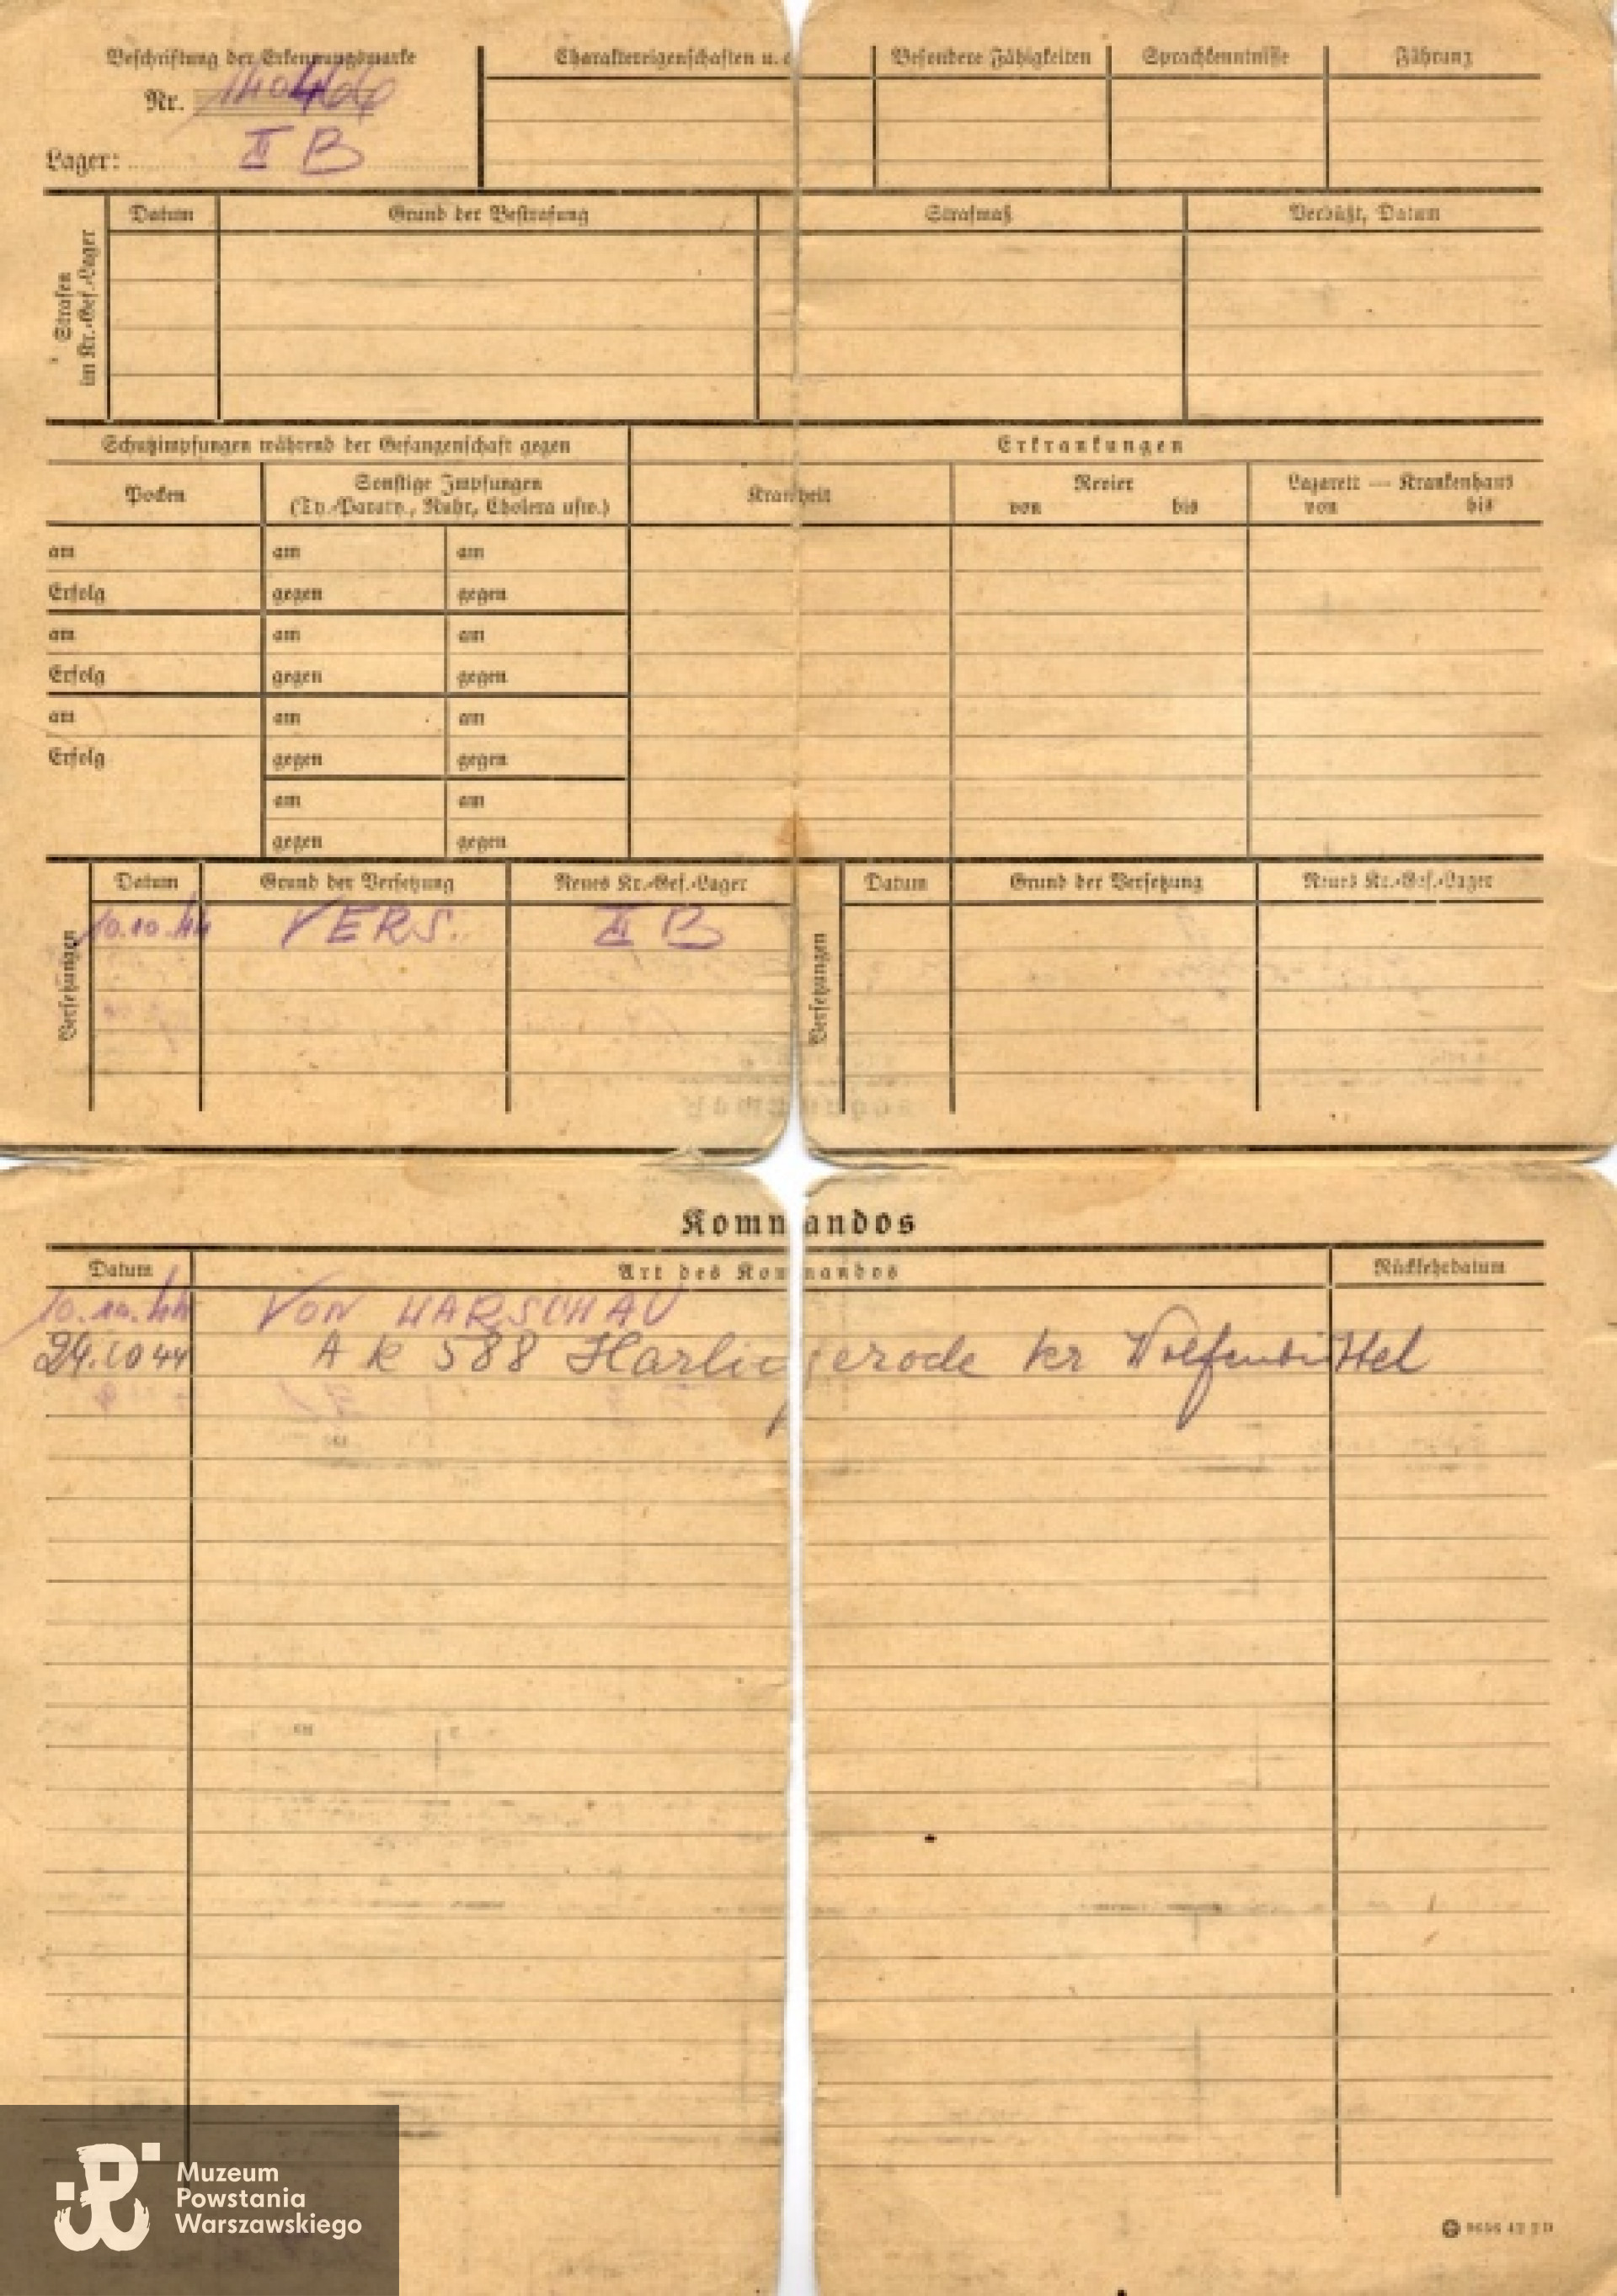 Beschriftung der Erkennungsmarke
Nr. 140466
Lager: II B
Charaktereigenschaften u.
Besondere Fähigkeiten
Sprachkenntnisse
Führung
Strafen
im Kr.-Gef.-Lager
Datum
Grund der Bestrafung
Strafmaß
Verbüßt, Datum
Schutzimpfungen während der Gefangenschaft gegen
Erkrankungen
Pocken
Sonstige Impfungen
(Ty.-Paraty., Ruhr, Cholera usw.)
Krankheit
Revier
von bis
Lazarett — Krankenhaus
von bis
am am am
Erfolg gegen gegen
am am am
Erfolg gegen gegen
am am am
Erfolg gegen gegen
am am
gegen gegen
Versetzungen
Datum Grund der Versetzung Neues Kr.-Gef.-Lager
10.10.44 VERS. II B
Versetzungen
Datum Grund der Versetzung Neues Kr.-Gef.-Lager
Kommandos
Datum Art des Kommandos Rückkehrdatum
10.10.44 VON WARSCHAU
24.10 44 A k 588 Harlingerode kr Wolfenbüttel
Muzeum
Powstania
Warszawskiego